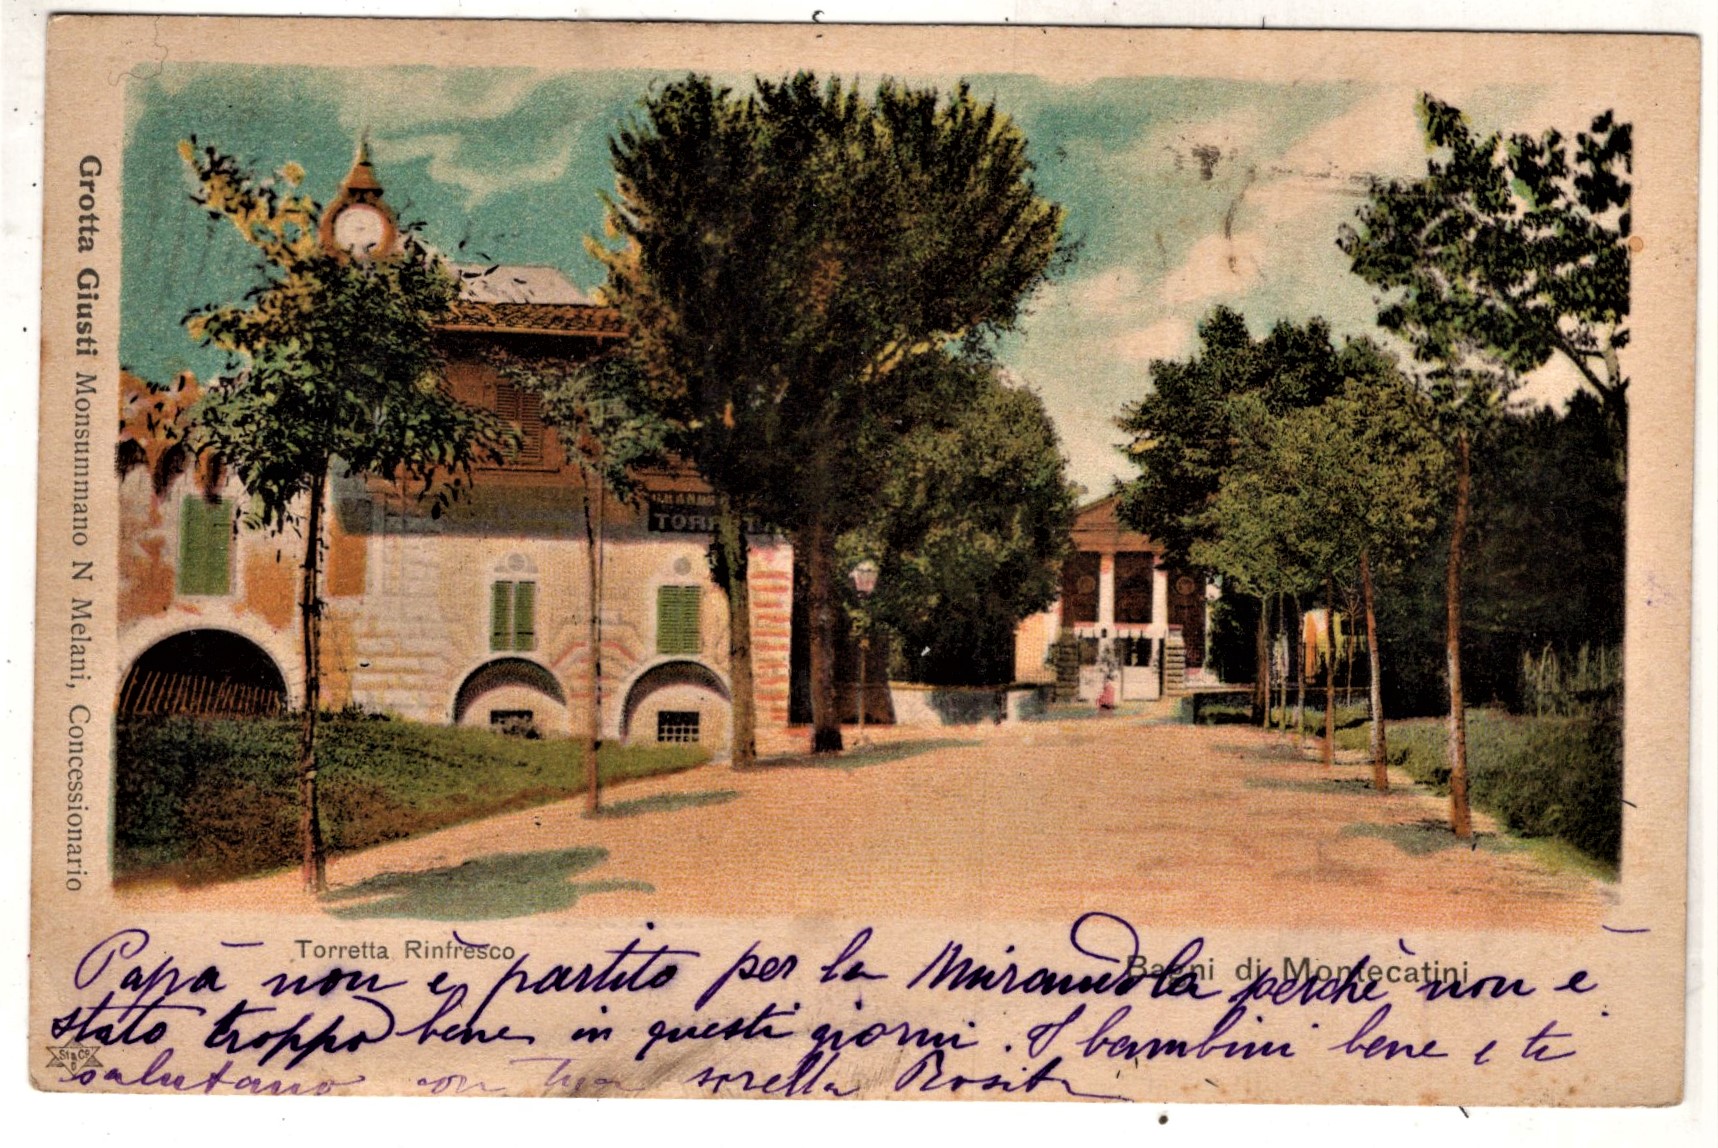 Grotta Giusti Monsummano N Melani, Concessionario
TORRETTA
Torretta Rinfresco
Bagni di Montecatini
Papà non è partito per la Mirandola perchè non è
stato troppo bene in questi giorni. I bambini bene e ti
salutano con tua sorella Rosita